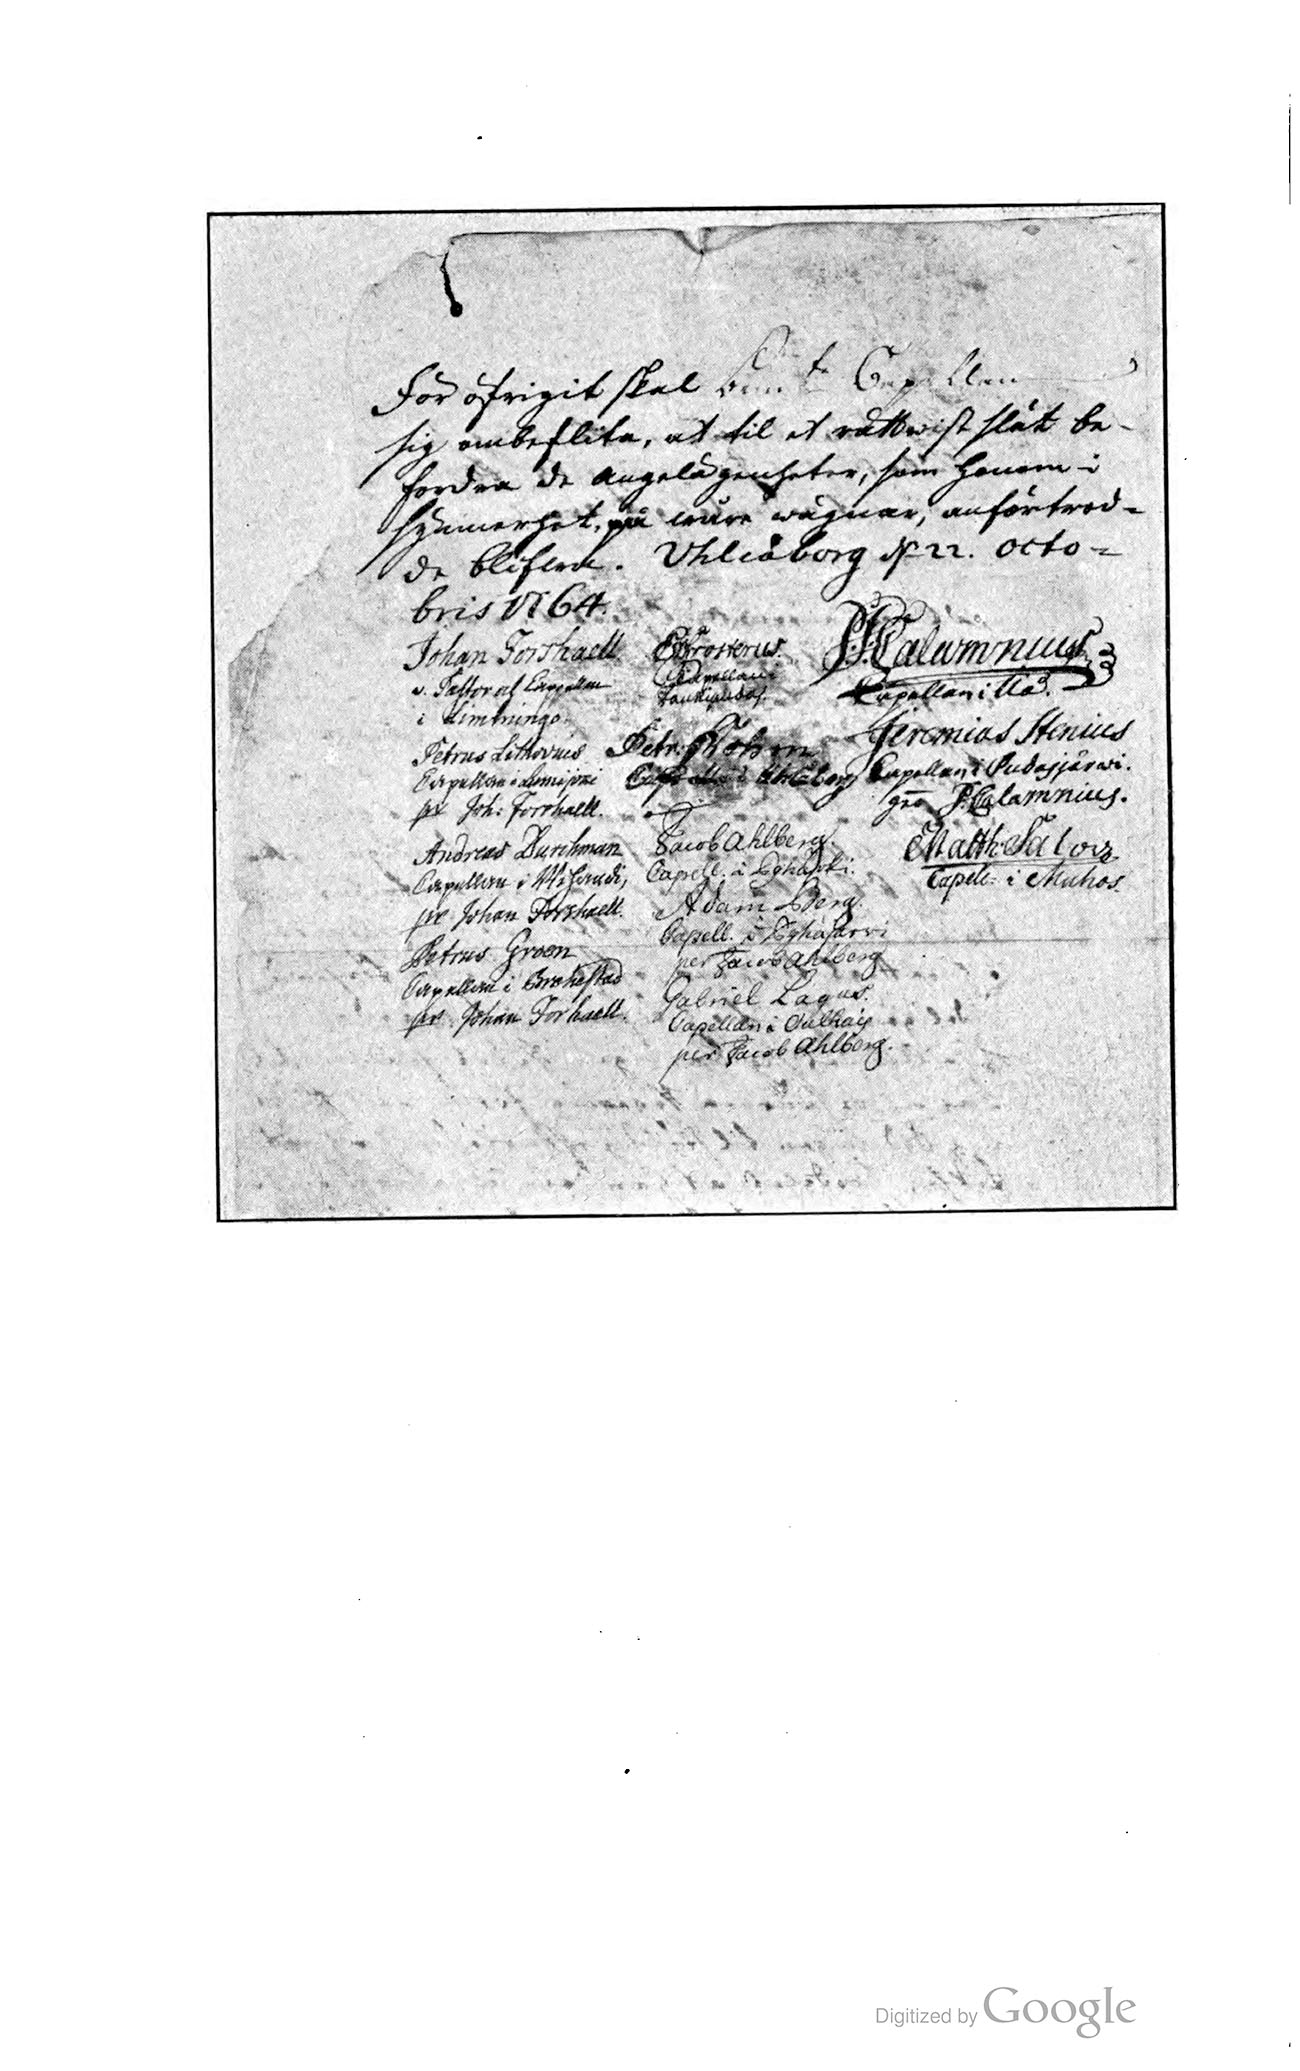 För öfrigit skal Capellan
sig ombeflita, at til et rättwist slut be-
fordra de angelägenheter, som honom i
synnerhet, på wåra wägnar, anförtrod-
de blifwa. Uhleåborg d. 22. Octo-
bris 1764.
Johan Forshaell
v. Pastor och Capellan
i Limmingo.
Petrus Lithovius
Capellan i Lumijoki
pr Joh: Forshaell.
Andreas Burchman
Capellan i
pr Johan Forshaell.
Petrus Groen
Capellan i Brahestad
pr Johan Forshaell.
Frosterus.
Capellan i
Petr:
Capellan i Uhleåborg
Jacob Ahlberg.
Capell. i
Adam Berg.
Capell. i
per Jacob Ahlberg
Gabriel Lagus.
Capellan i
per Jacob Ahlberg.
Calamnius
Capellan i
Jeremias Stenius
Capellan i Pudasjärwi.
P. Calamnius.
Matth:
Capell: i Muhos
Digitized by Google